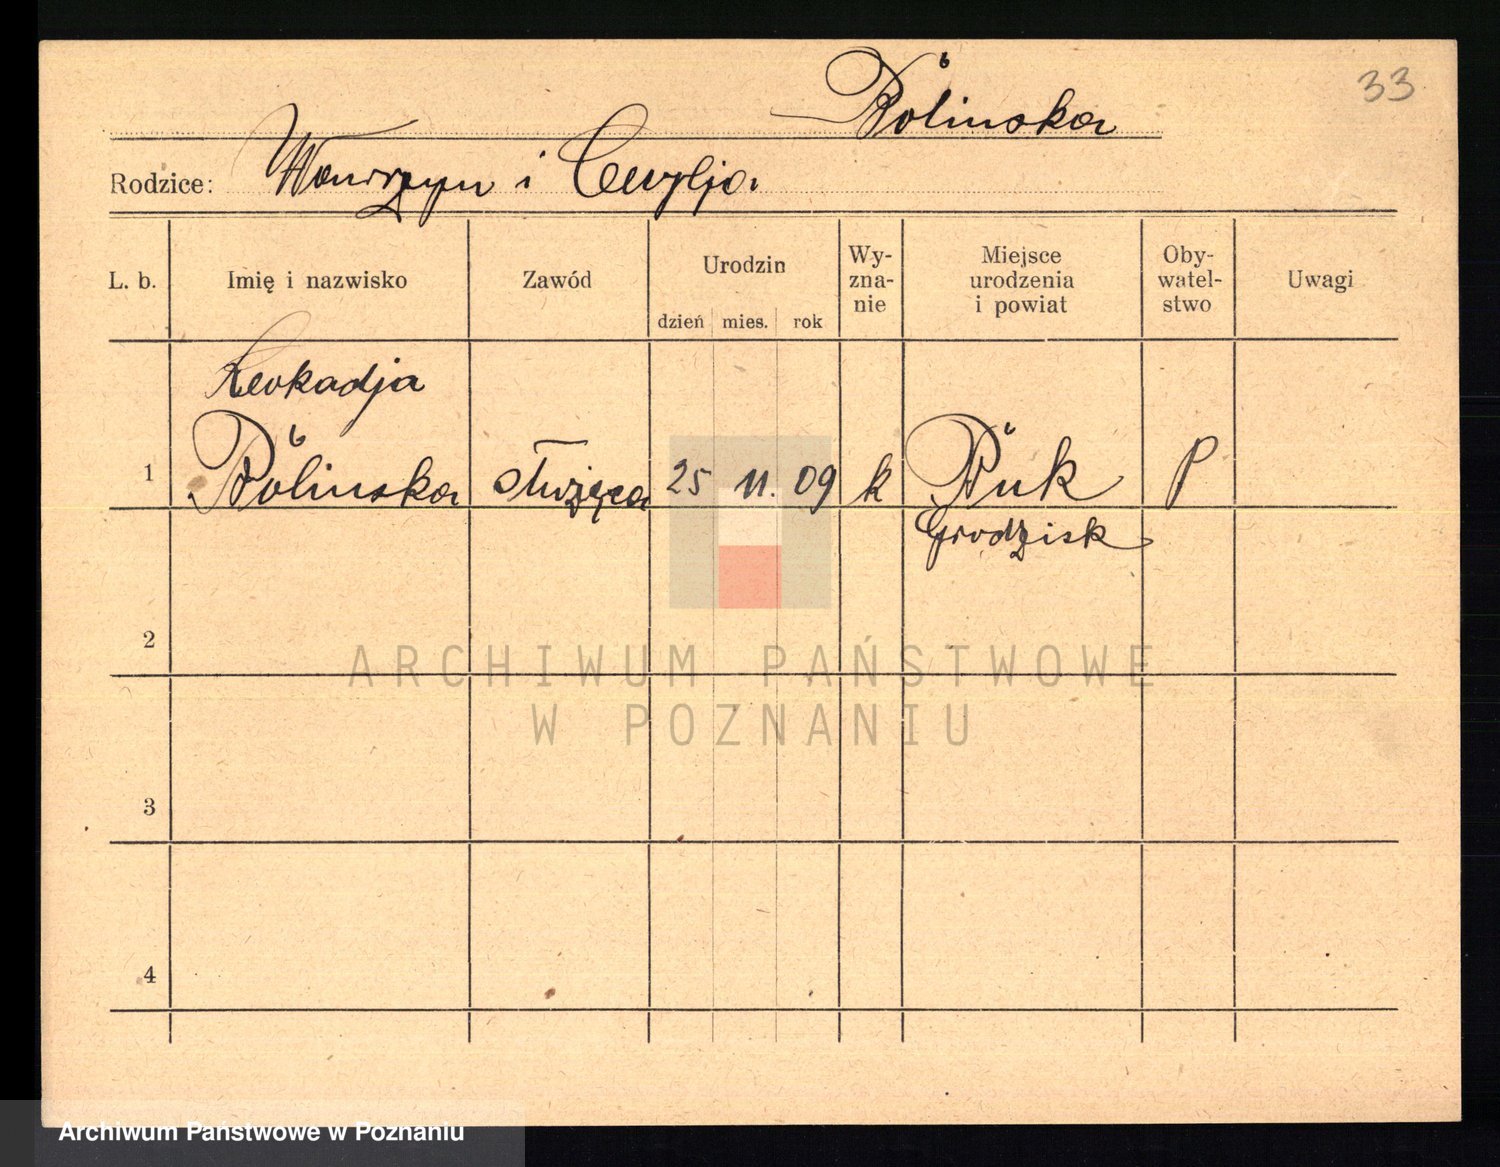 33
Bölinska
Rodzice: Wawrzyn i Cecylja
L. b.
Imię i nazwisko
Zawód
Urodzin
dzień mies. rok
Wy-
zna-
nie
Miejsce
urodzenia
i powiat
Oby-
watel-
stwo
Uwagi
Leokadja
1 Bölinska służąca 25 11. 09 k Buk P
Grodzisk
2
3
4
ARCHIWUM PAŃSTWOWE
W POZNANIU
Archiwum Państwowe w Poznaniu